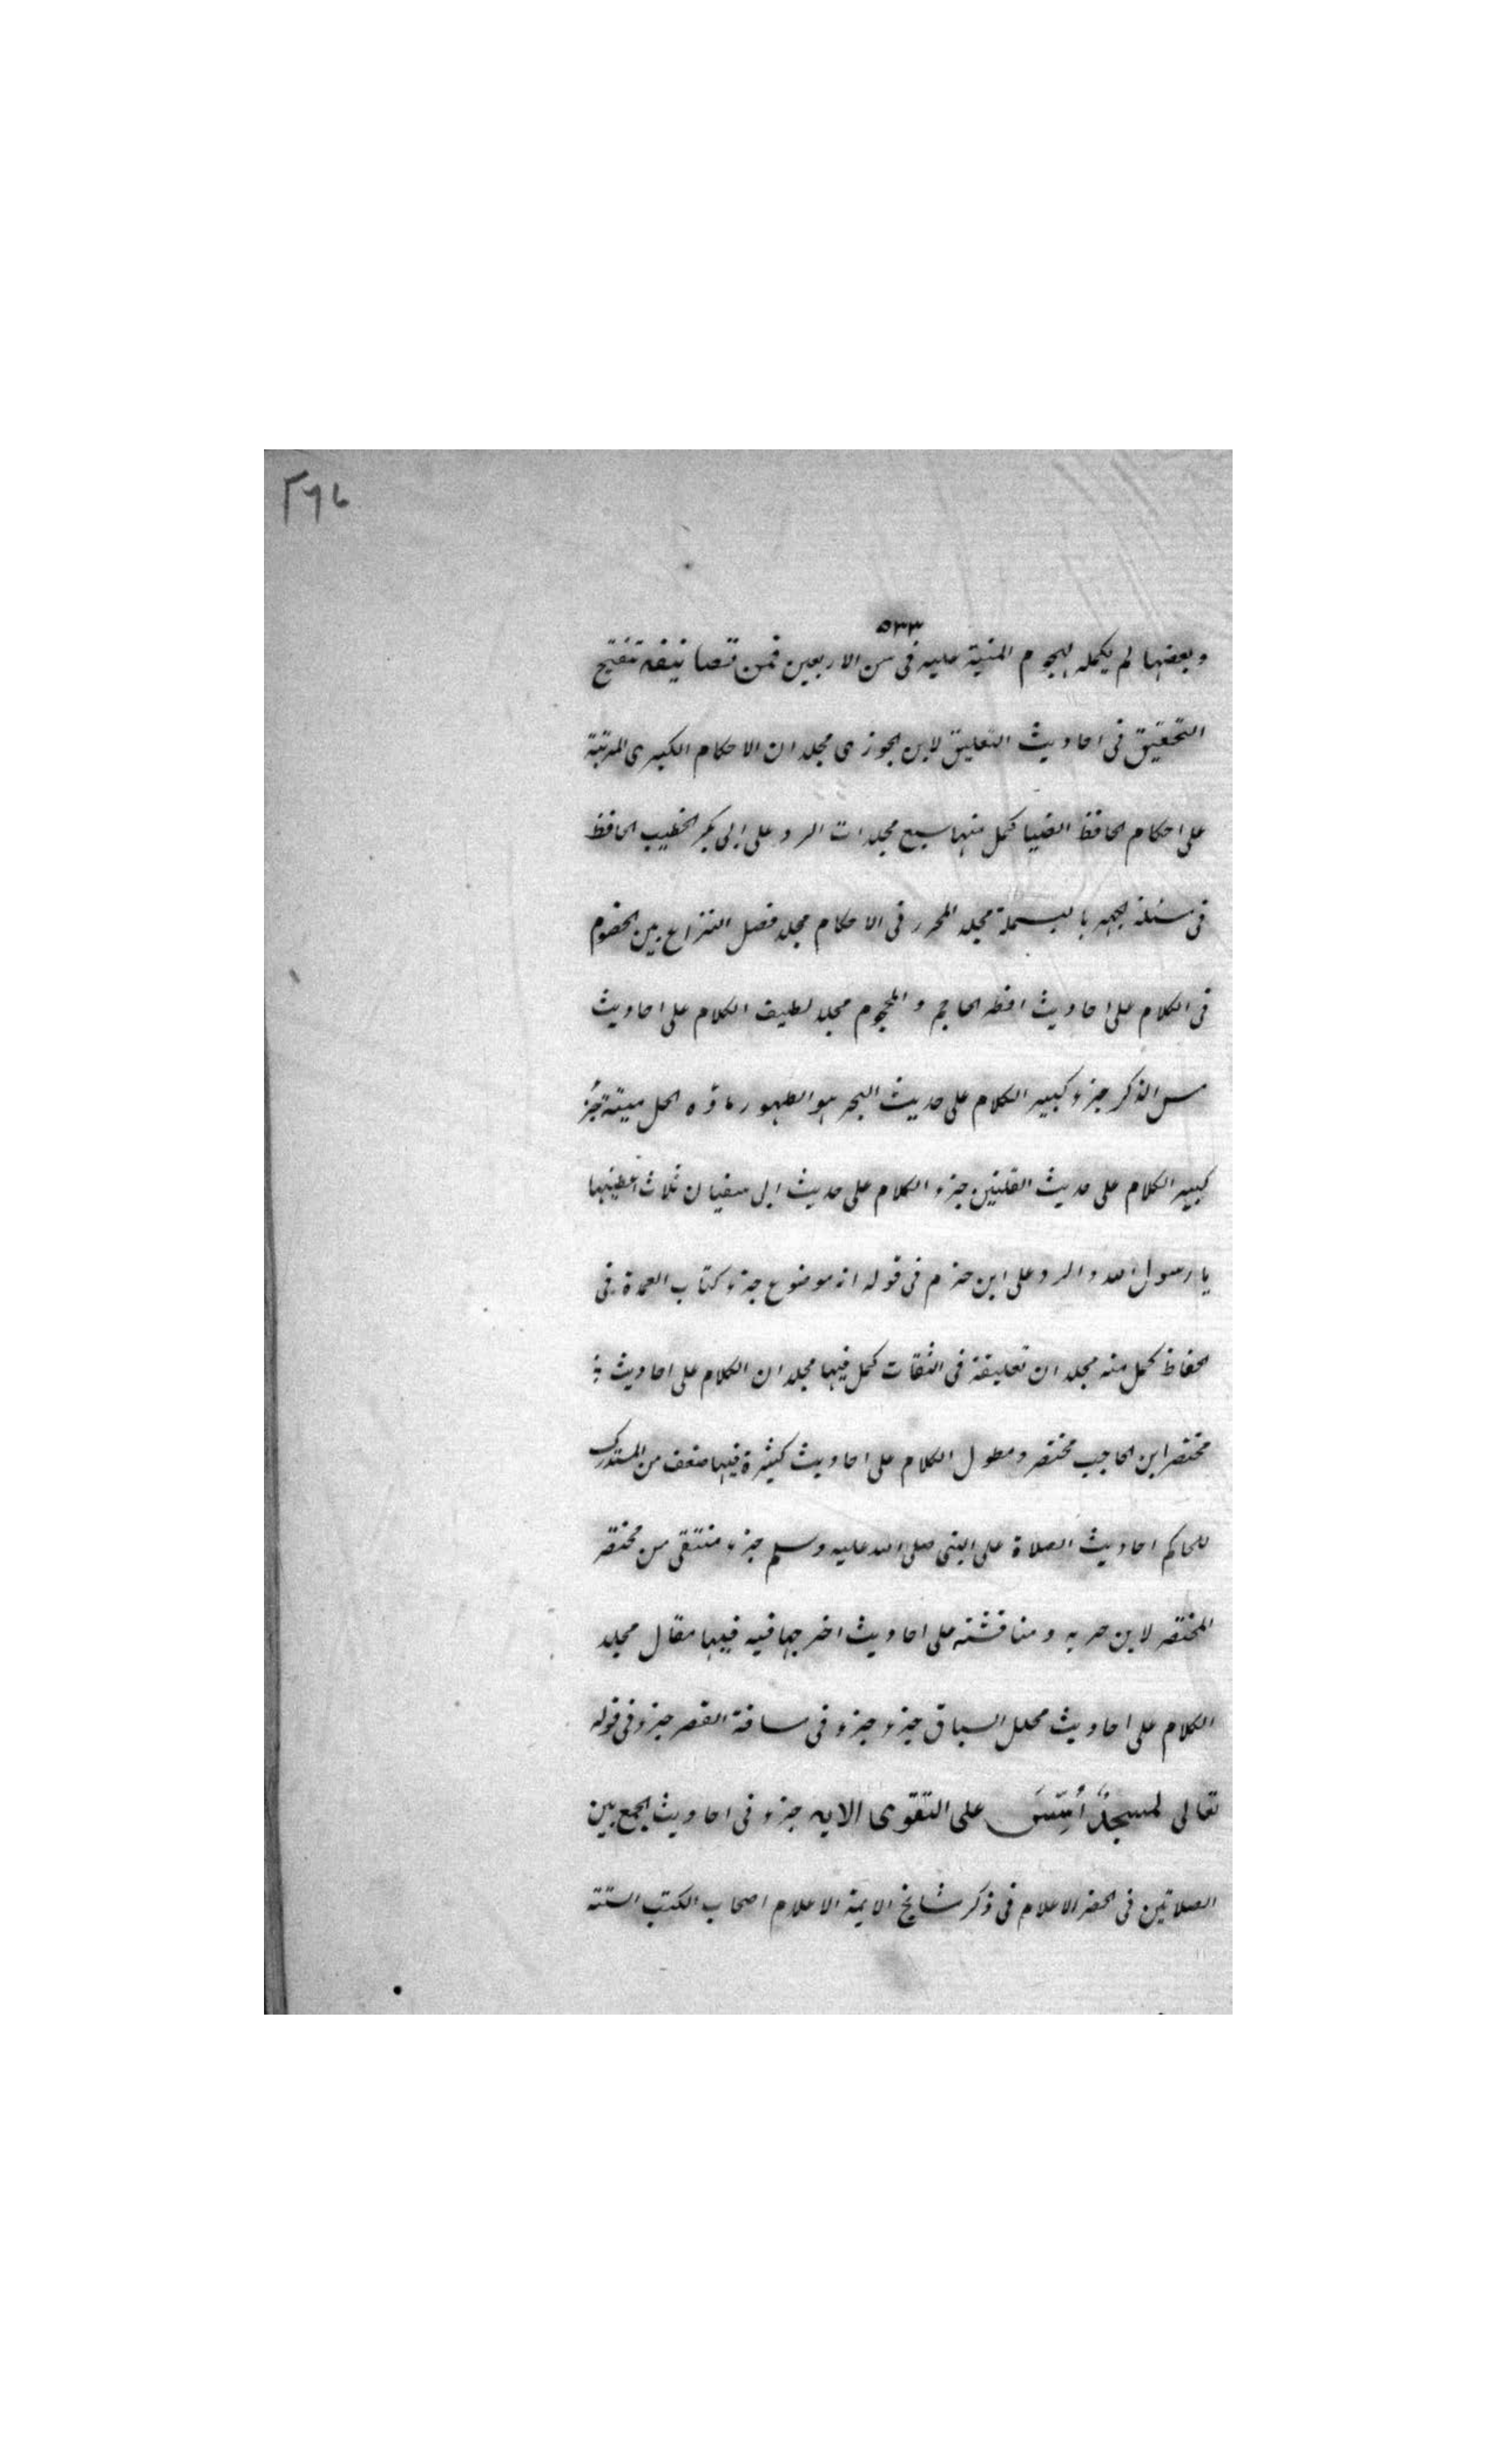 ٢٦٧
٥٣٣
وبعضها لم يكمله لهجوم المنية عليه فى سن الاربعين فمن تصانيفه تنقيح
التحقيق فى احاديث التعليق لابن الجوزى مجلدان الاحكام الكبرى المرتبة
على احكام الحافظ الضيا كمل منها سبع مجلدات الرد على ابى بكر الخطيب الحافظ
فى مسئلة الجهر بالبسملة مجلد المحرر فى الاحكام مجلد فصل النزاع بين الخصوم
فى الكلام على احاديث افطر الحاجم و المحجوم مجلد لطيف الكلام على احاديث
مس الذكر جزء كبير الكلام على حديث البحر هو الطهور ماؤه الحل ميتته جزء
كبير الكلام على حديث القلتين جزء الكلام على حديث ابى سفيان ثلاث اعطنيها
يا رسول الله والرد على ابن حزم فى قوله انه موضوع جزء كتاب العمدة فى
الحفاظ كمل منه مجلدان تعليقة فى الثقات كمل فيها مجلدان الكلام على احاديث
مختصر ابن الحاجب مختصر ومطول الكلام على احاديث كثيرة فيها ضعف من المستدرك
للحاكم احاديث الصلاة على النبى صلى الله عليه وسلم جزء منتقى من مختصر
المختصر لابن خزيمة ومناقشته على احاديث اخرجها فيه فيها مقال مجلد
الكلام على احاديث محلل السباق جزء جزء فى مسافة القصر جزء فى قوله
تعالى لمسجدٌ أُسِّسَ على التقوى الايه جزء فى احاديث الجمع بين
الصلاتين فى الحضر الاعلام فى ذكر مشايخ الايمة الاعلام اصحاب الكتب الستة